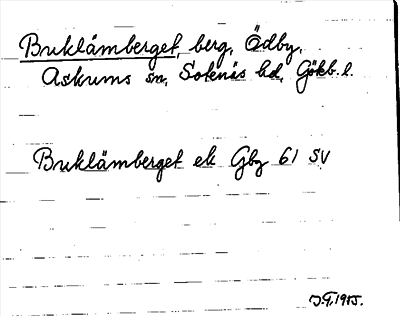 Buklåmberget, berg, Ödby,
Askums sn, Sotenäs hd, Götb. l.
Buklåmberget ek Gby 61 SV